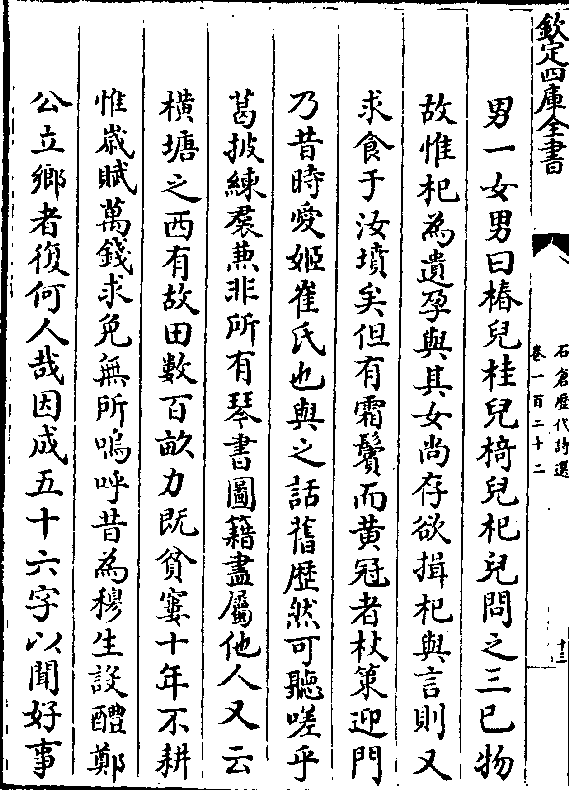 欽定四庫全書
石倉歷代詩選
卷一百二十二
十三
男一女男曰椿兒桂兒椅兒杞兒問之三已物
故惟杞為遺孕與其女尚存欲揖杞與言則又
求食于汝墳矣但有霜鬢而黄冠者杖策迎門
乃昔時愛姬崔氏也與之話舊歴然可聽嗟乎
葛披練裙兼非所有琴書圖籍盡屬他人又云
横塘之西有故田數百畝力既貧窶十年不耕
惟嵗賦萬錢求免無所嗚呼昔為穆生設醴鄭
公立鄉者復何人哉因成五十六字以聞好事